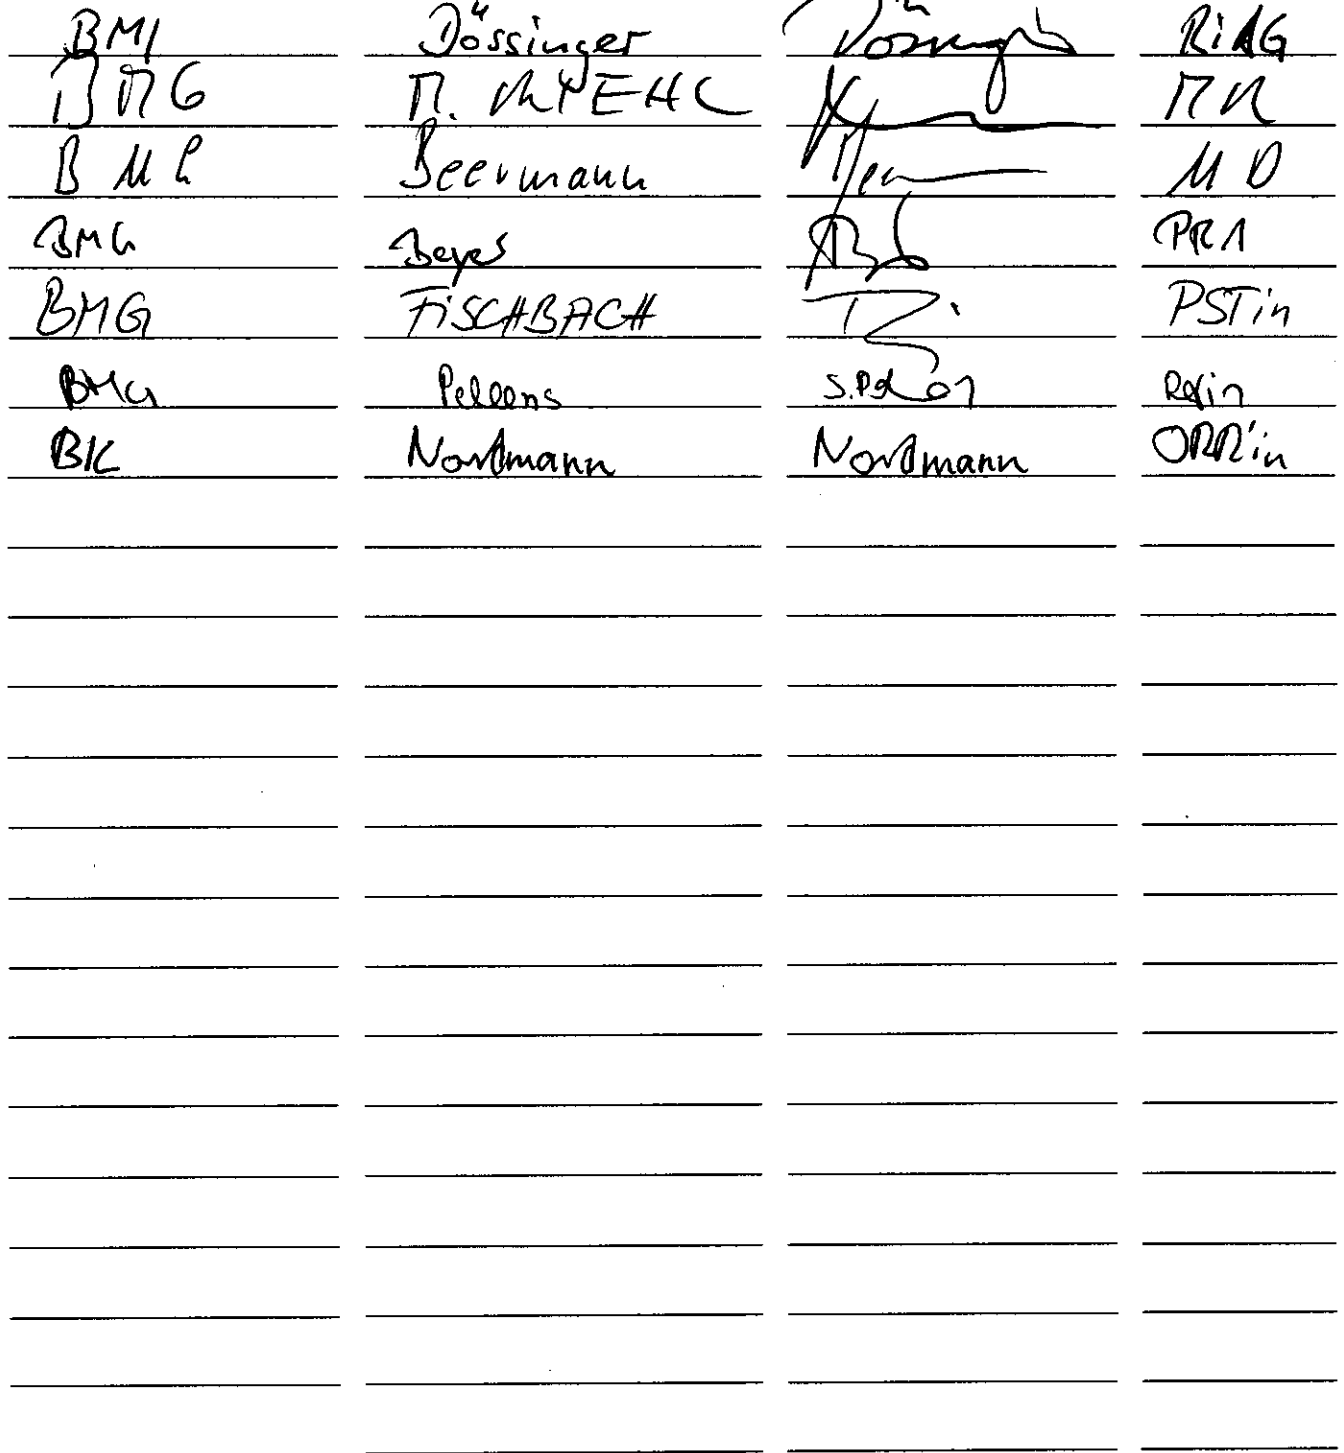 BMI Dössinger RiAG
BMG M. MR
BMG Beermann MD
BMG Beyer PR1
BMG FiSCHBACH PSTin
BMG Pellens S.Pell RRin
BK Nordmann Nordmann ORR'in